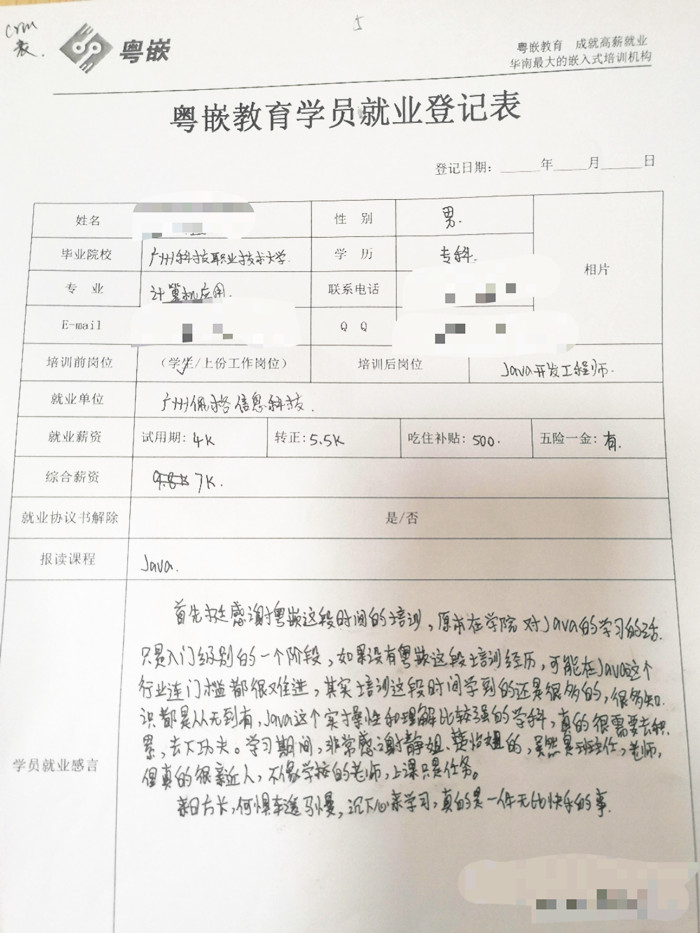 crm
表.
5
粤嵌
粤嵌教育 成就高薪就业
华南最大的嵌入式培训机构
粤嵌教育学员就业登记表
登记日期：______年_____月______日
姓名
性 别
男.
毕业院校
广州科技职业技术大学.
学 历
专科.
相片
专 业
计算机应用.
联系电话
E-mail
Q Q
培训前岗位
（学生/上份工作岗位）
培训后岗位
Java开发工程师.
就业单位
广州佩格信息科技.
就业薪资
试用期：4K
转正：5.5K
吃住补贴：500.
五险一金：有.
综合薪资
7K.
就业协议书解除
是/否
报读课程
Java.
学员就业感言
首先感谢粤嵌这段时间的培训，原本在学院对Java的学习的话
只是入门级别的一个阶段，如果没有粤嵌这段培训经历，可能在Java这个
行业连门槛都很难进，其实培训这段时间学到的还是很多的，很多知
识都是从无到有，Java这个实操性和理解比较强的学科，真的很需要去积
累，去下功夫。学习期间，非常感谢静姐、姐的，虽然是班主任，老师，
但真的很亲近人，不像学校的老师，上课只是任务。
来日方长，何惧车遥马慢，沉下心来学习，真的是一件无比快乐的事.